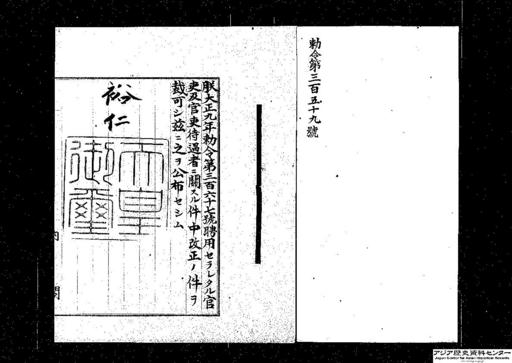 勅令第三百五十九號
朕大正九年勅令第三百六十七號聘用セラレタル官
吏及官吏待遇者ニ關スル件中改正ノ件ヲ
裁可シ玆ニ之ヲ公布セシム
裕仁
天皇
御璽
内閣
アジア歴史資料センター
Japan Center for Asian Historical Records